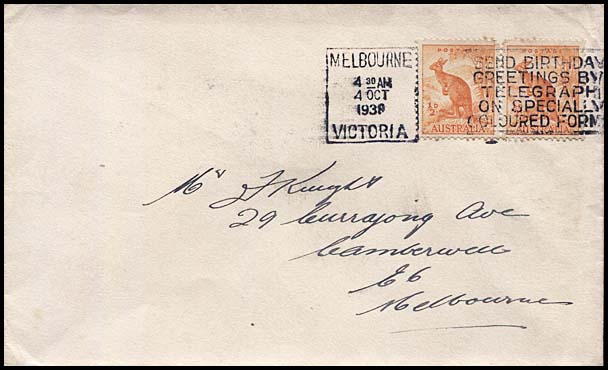 MELBOURNE
4 30 AM
4 OCT
1938
VICTORIA
POSTAGE
½D
AUSTRALIA
POSTAGE
AUSTRALIA
SEND BIRTHDAY
GREETINGS BY
TELEGRAPH
ON SPECIALLY
COLOURED FORM
Mr J Knight
29 Currajong Ave
Camberwell
E6
Melbourne